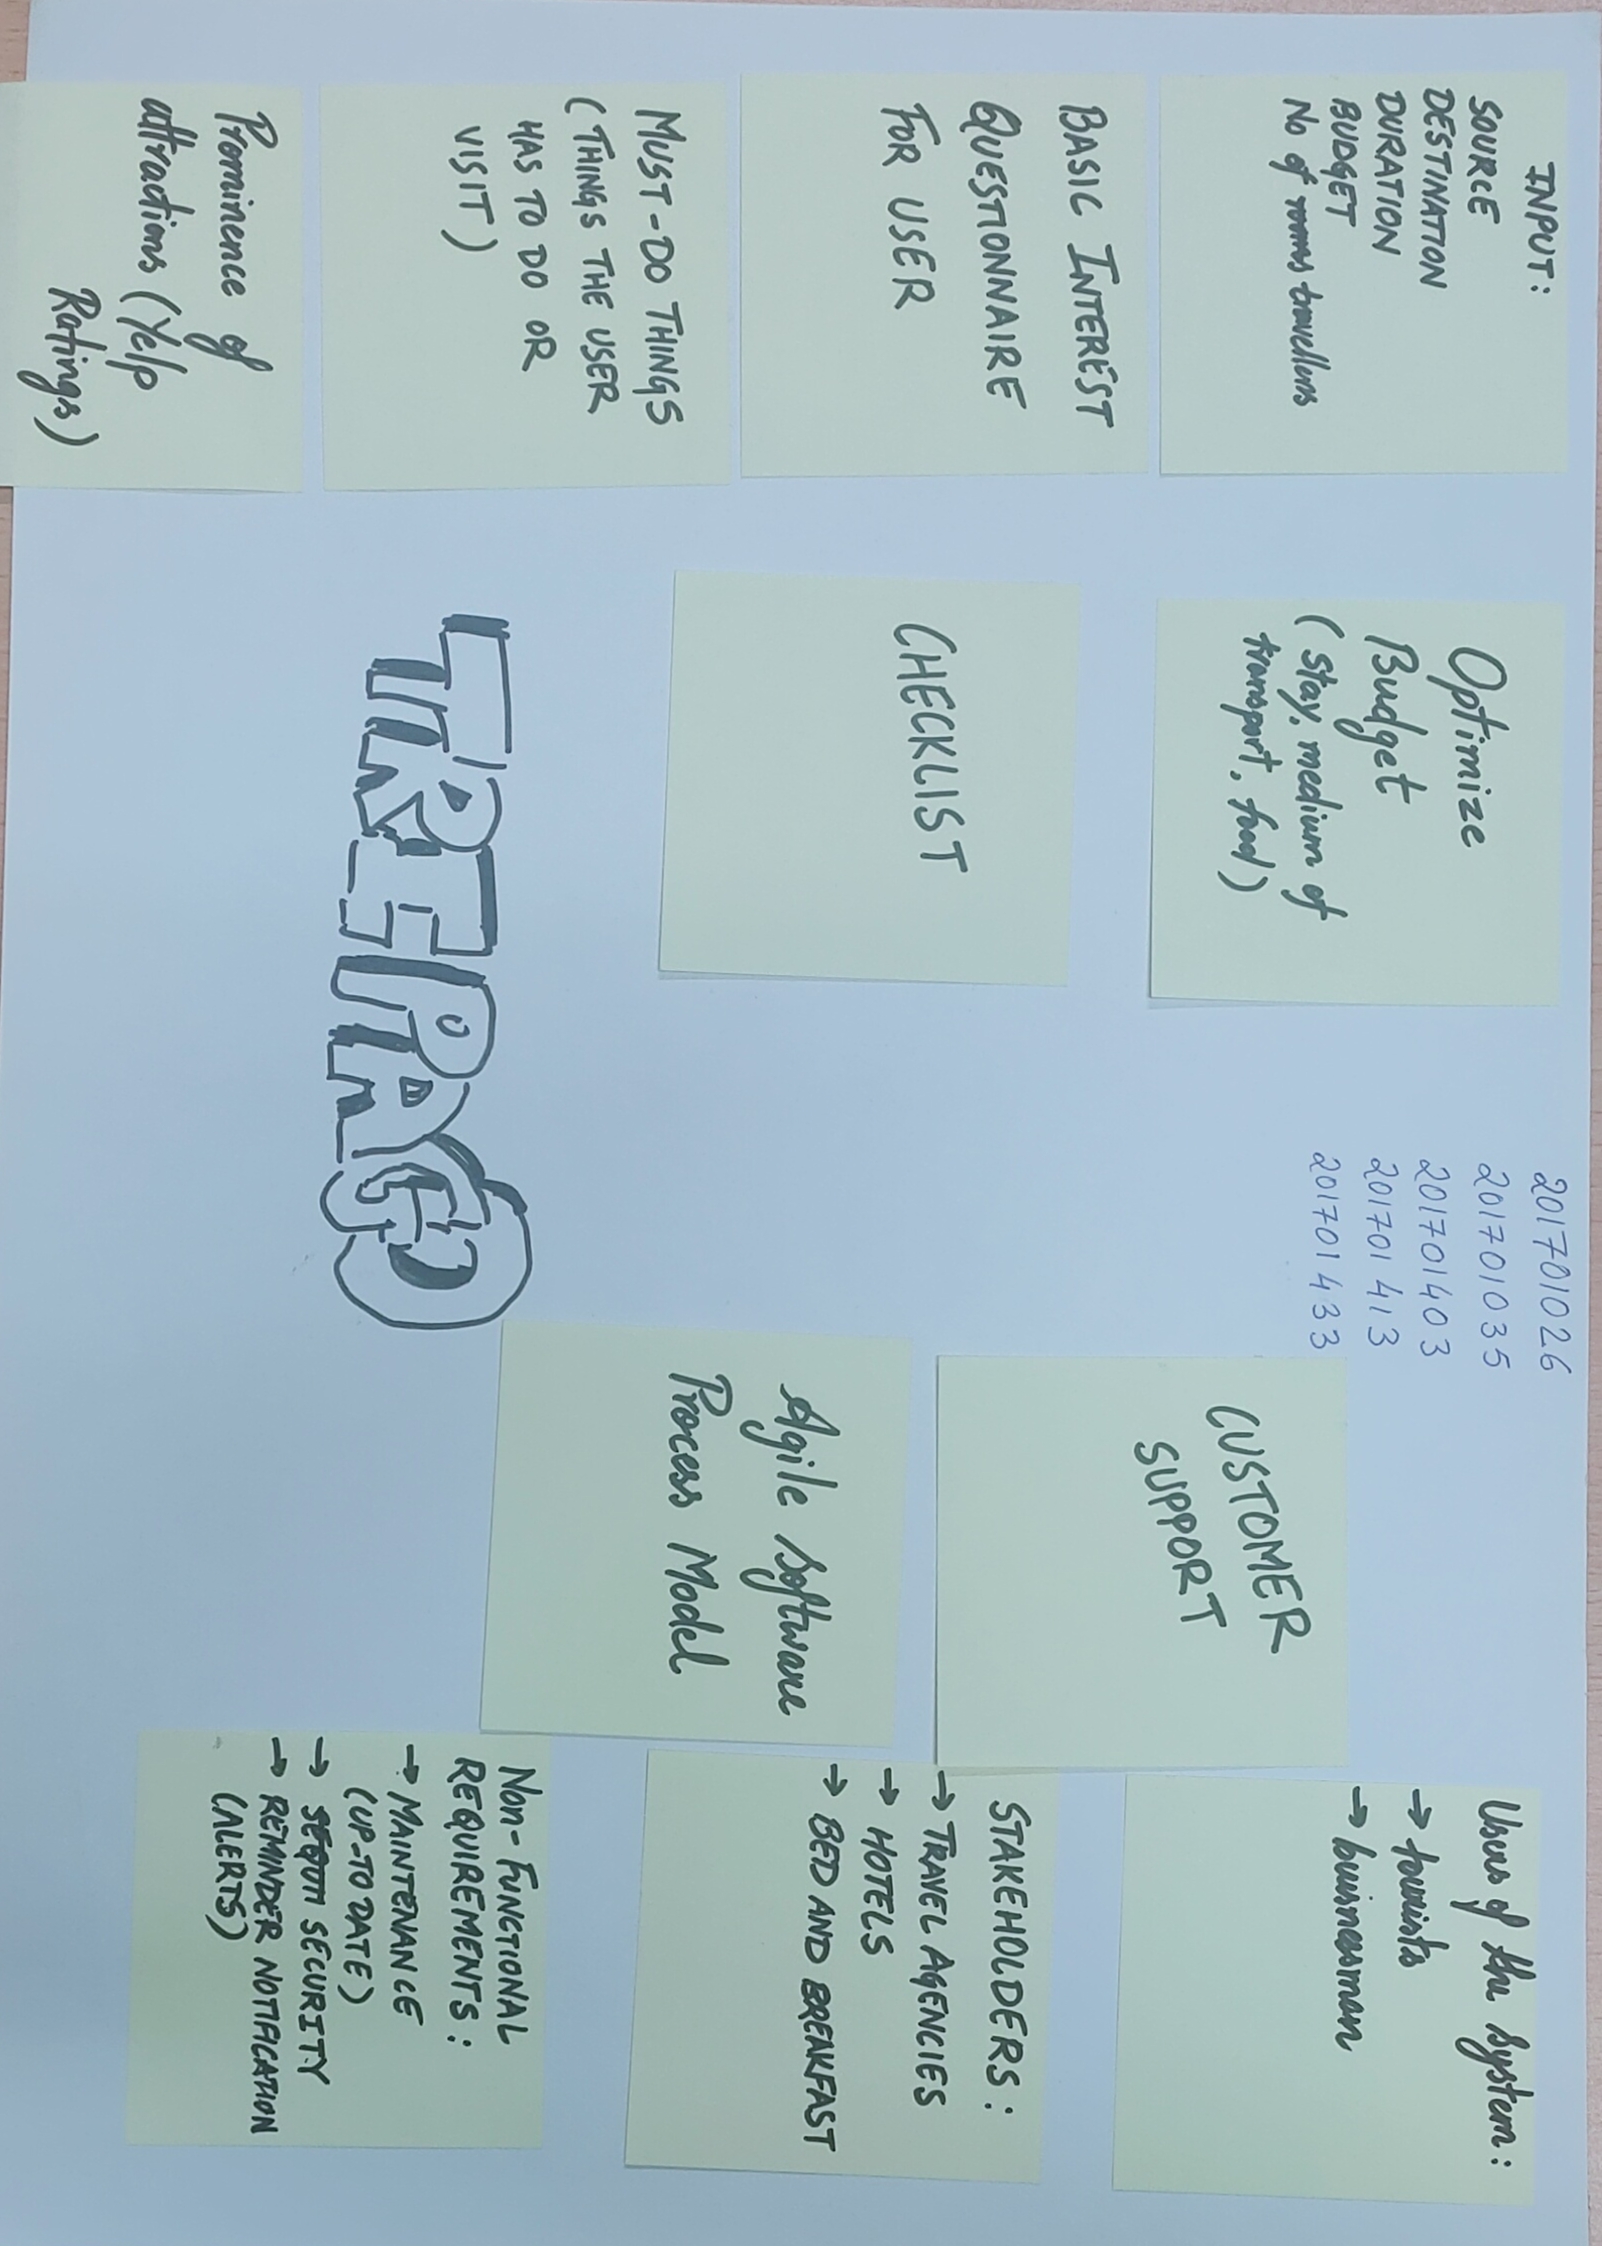 INPUT:
SOURCE
DESTINATION
DURATION
BUDGET
No of travellers
BASIC INTEREST
QUESTIONNAIRE
FOR USER
MUST-DO THINGS
(THINGS THE USER
HAS TO DO OR
VISIT)
Prominence of
attractions (Yelp
Ratings)
Optimize
Budget
(stay, medium of
transport, food)
CHECKLIST
TRIPAGO
201701026
201701035
201701403
201701413
201701433
CUSTOMER
SUPPORT
Agile Software
Process Model
Users of the System:
→ tourists
→ businessman
STAKEHOLDERS:
→ TRAVEL AGENCIES
→ HOTELS
→ BED AND BREAKFAST
Non-FUNCTIONAL
REQUIREMENTS:
→ MAINTENANCE
(UP-TO DATE)
→ SECURITY
→ REMINDER NOTIFICATION
(ALERTS)